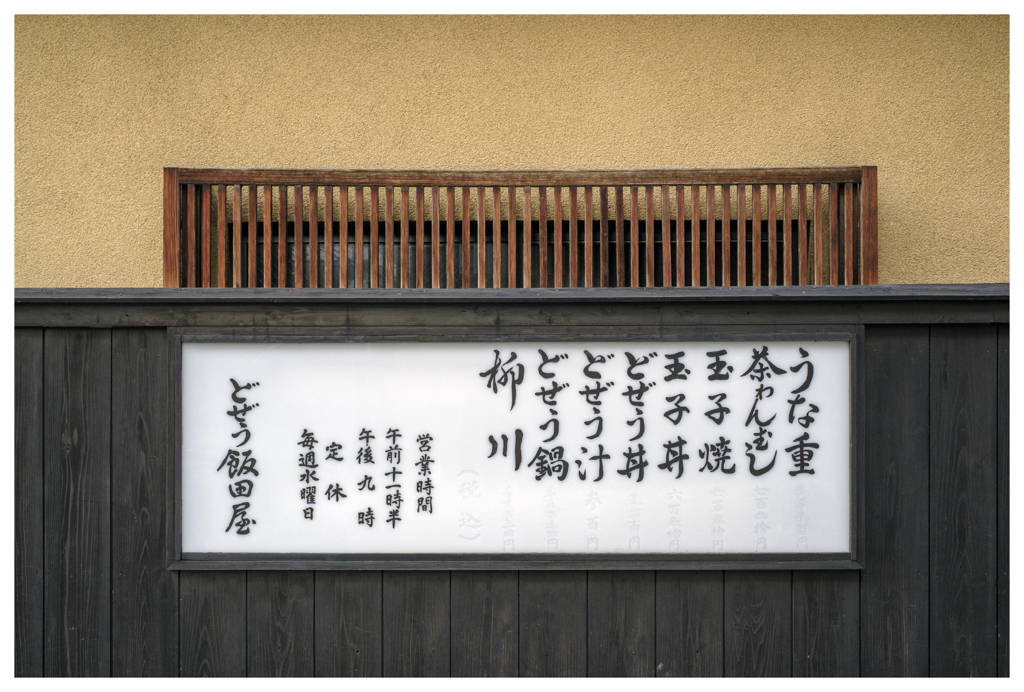 うな重
茶わんむし
玉子焼
玉子丼
どぜう丼
どぜう汁
どぜう鍋
柳川
(税込)
営業時間
午前十一時半
午後九時
定休
毎週水曜日
どぜう飯田屋